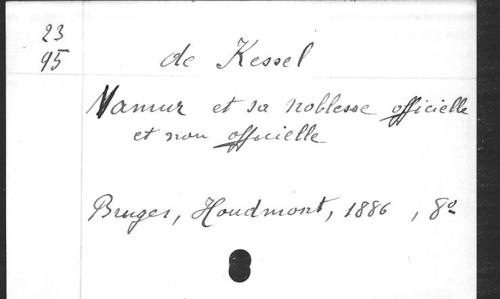 23
95
de Kessel
Namur et sa noblesse officielle
et non officielle
Bruges, Houdmont, 1886, 8º